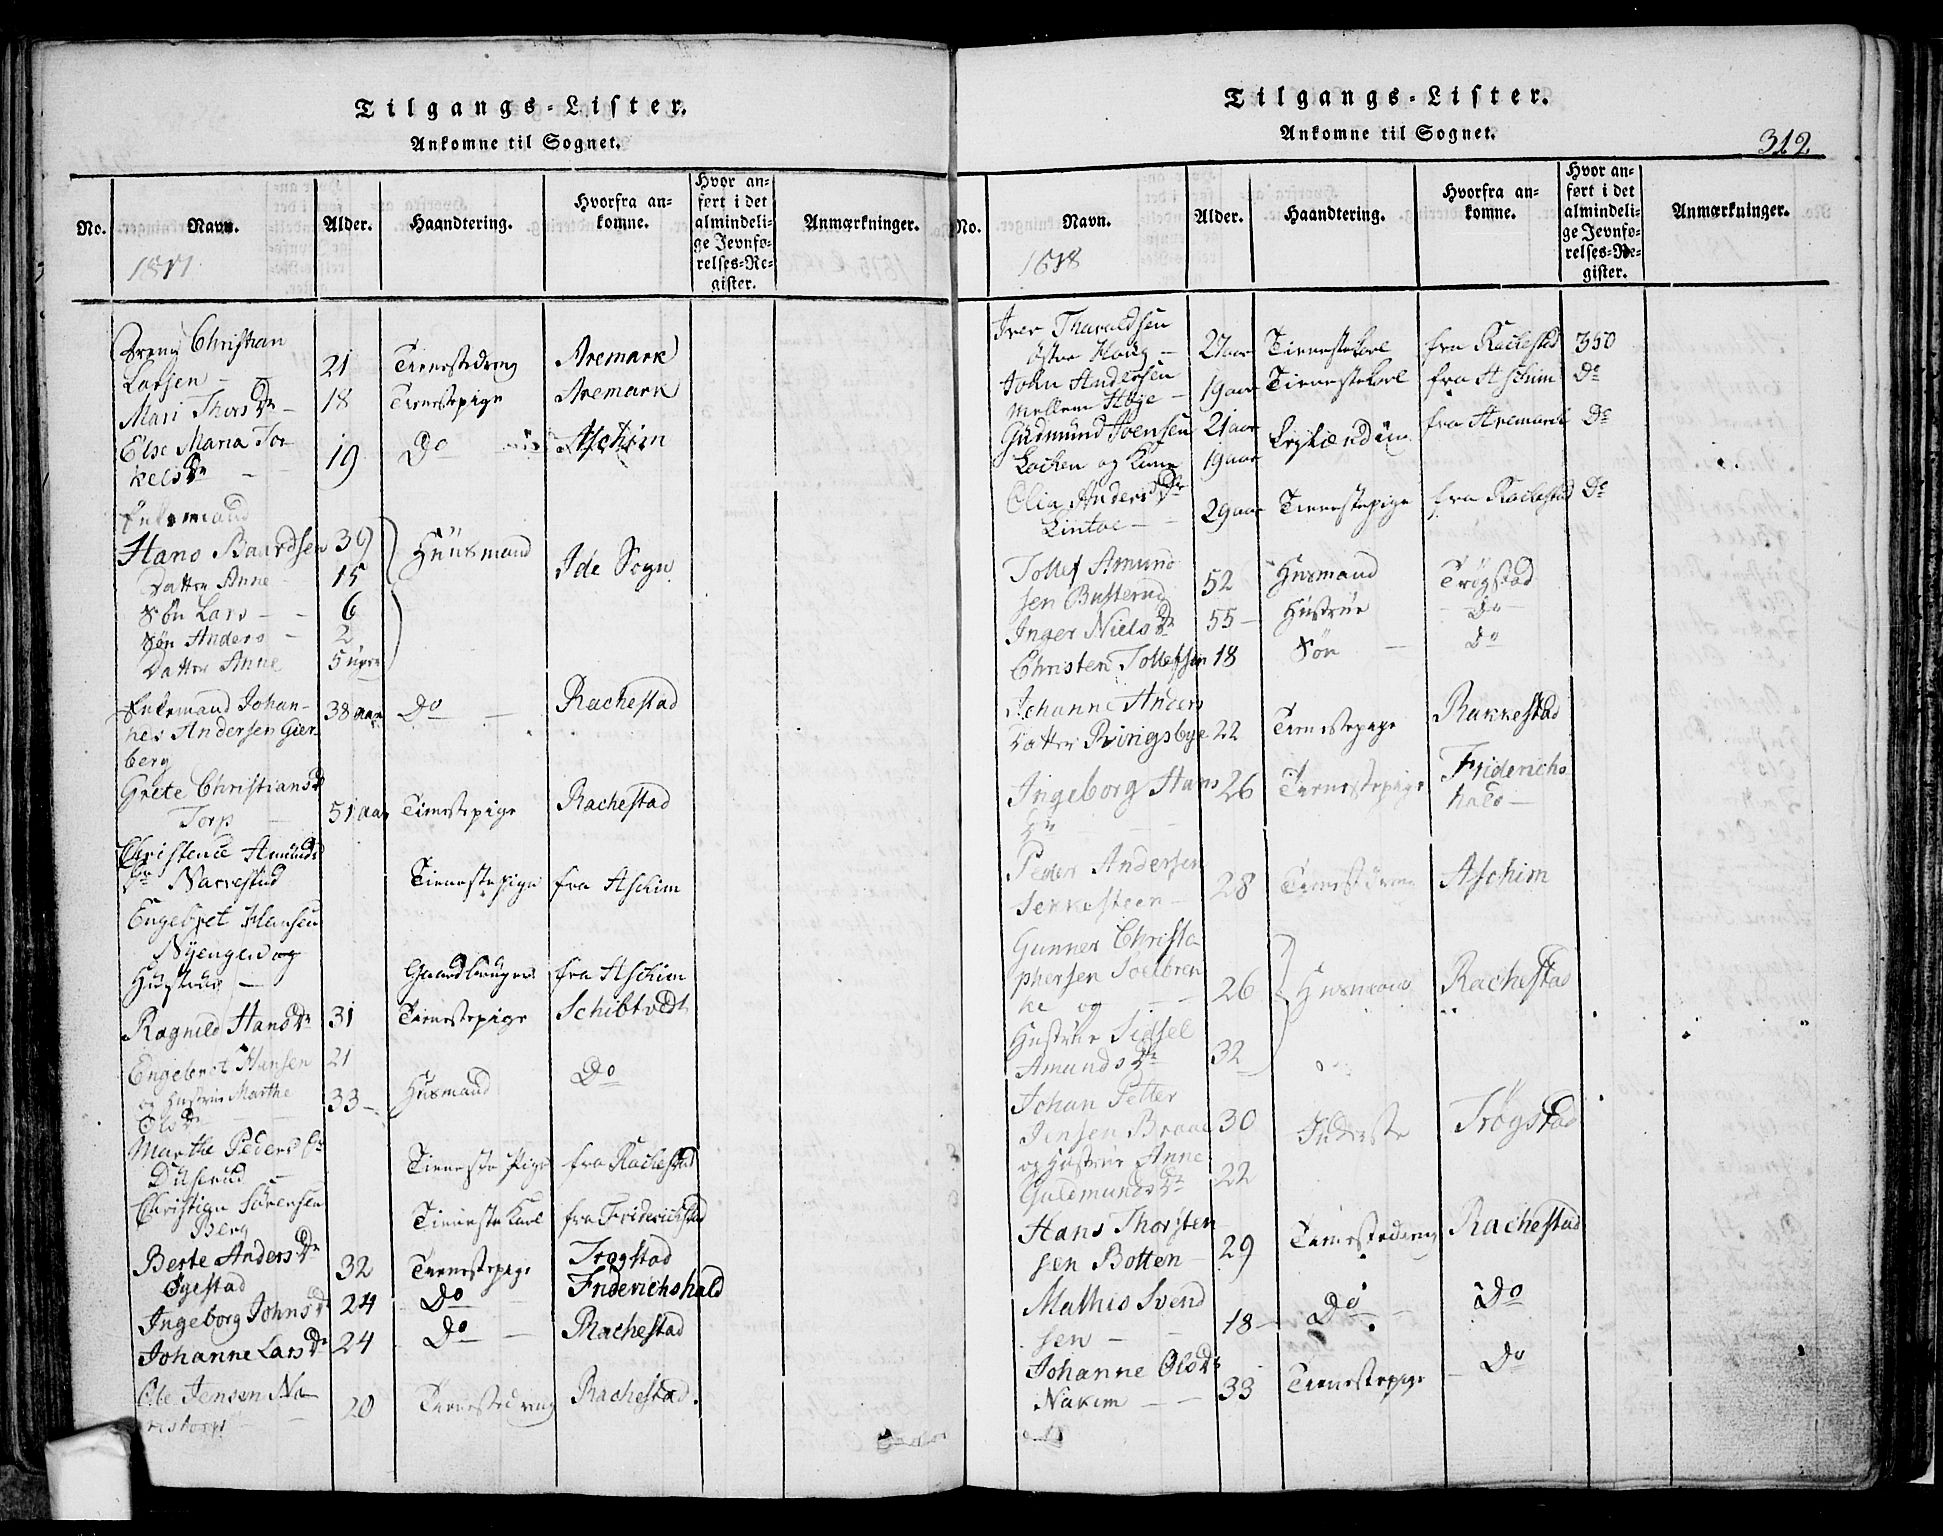 Tilgangs-Lister.
Ankomne til Sognet.
No. Navn. Alder. Haandtering. Hvorfra ankomne. Hvor anført i det almindelige Jevnførelses-Register. Anmærkninger.
Christian
Larsen 21 Tienestedreng Aremark
Mari Thorsdr 18 Tienestepige Aremark
Else Maria Tor
kelsdr 19 Do Aschim
Enkemand
Hans Baardsen 39 Huusmand Ide Sogn
Datter Anne 15
Søn Lars 6
Søn Anders 2
Datter Anne 5 uger
Enkemand Johan-
nes Andersen Gier 38 aar Do Rachestad
berg
Grete Christiansd
Torp 51 aar Tienestepige Rachestad
Christence Amunds
dr Narvestad Tienestepige fra Aschim
Engebret Hansen
Nyengen og
Hustrue Gaardbruger fra Aschim
Ragnild Hansdr 31 Tienestepige Schibtvedt
Engebret Hansen 21
og Hustrue Marthe 33 Husmand Do
Olsdr
Marthe Pedersdr
Duserud Tieneste Pige fra Rachestad
Christian Sørensen
Berg Tieneste Karl fra Friderichstad
Berte Andersdr 32 Tienestepige Trøgstad
Øyestad
Ingeborg Johnsdr 24 Do Friderichshald
Johanne Larsdr 24 Do Rachestad
Ole Jensen Na
20 Tienestedreng Rachestad.
Tilgangs-Lister.
Ankomne til Sognet.
312
No. Navn. Alder. Haandtering. Hvorfra ankomne. Hvor anført i det almindelige Jevnførelses-Register. Anmærkninger.
1818
Iver Tharaldsen
østre Haug 27 aar Tienestekarl fra Rachestad 350
John Andersen
mellem Høye 19 aar Tienestekarl fra Aschim Do
Gudmund Svensen 21 aar fra Aremark Do
Løcken og Kune 19 aar
Olia Andersdr
Lintoe 29 aar Tienestepige fra Rachestad Do
Tollef Amund
sen Busterud 52 Husmand Trøgstad
Inger Nielsdr 55 Hustrue Do
Christen Tollefsen 18 Søn Do
Johanne Anders
datter Ringsbye 22 Tienestepige Rakkestad
Ingeborg Hans 26 Tienestepige Friderichs
hald
Peder Andersen
Serkesteen 28 Tienestdreng Aschim
Gunner Christo
phersen Soelbren
ke og 26 Husmand Rachestad
Hustrue Sidsel
Amundsdr 32
Johan Petter
Jensen Braae 30 Inderste Trøgstad
og Hustrue Anne
Guldmundsdr 22
Hans Thorsten
sen Botten 29 Tienestedreng Rachestad
Mathis Svend
sen 18 Do Do
Johanne Olsdr
Nakim 33 Tienestepige Do